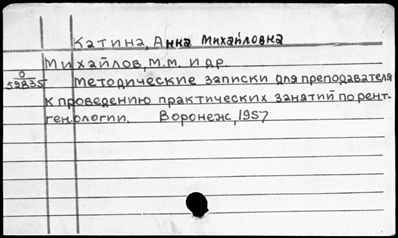 Катина, Анна Михайловна
Михайлов, М.М. и др.
О
59835
Методические записки для преподавателя
к проведению практических занятий по рент-
генологии. Воронеж, 1957